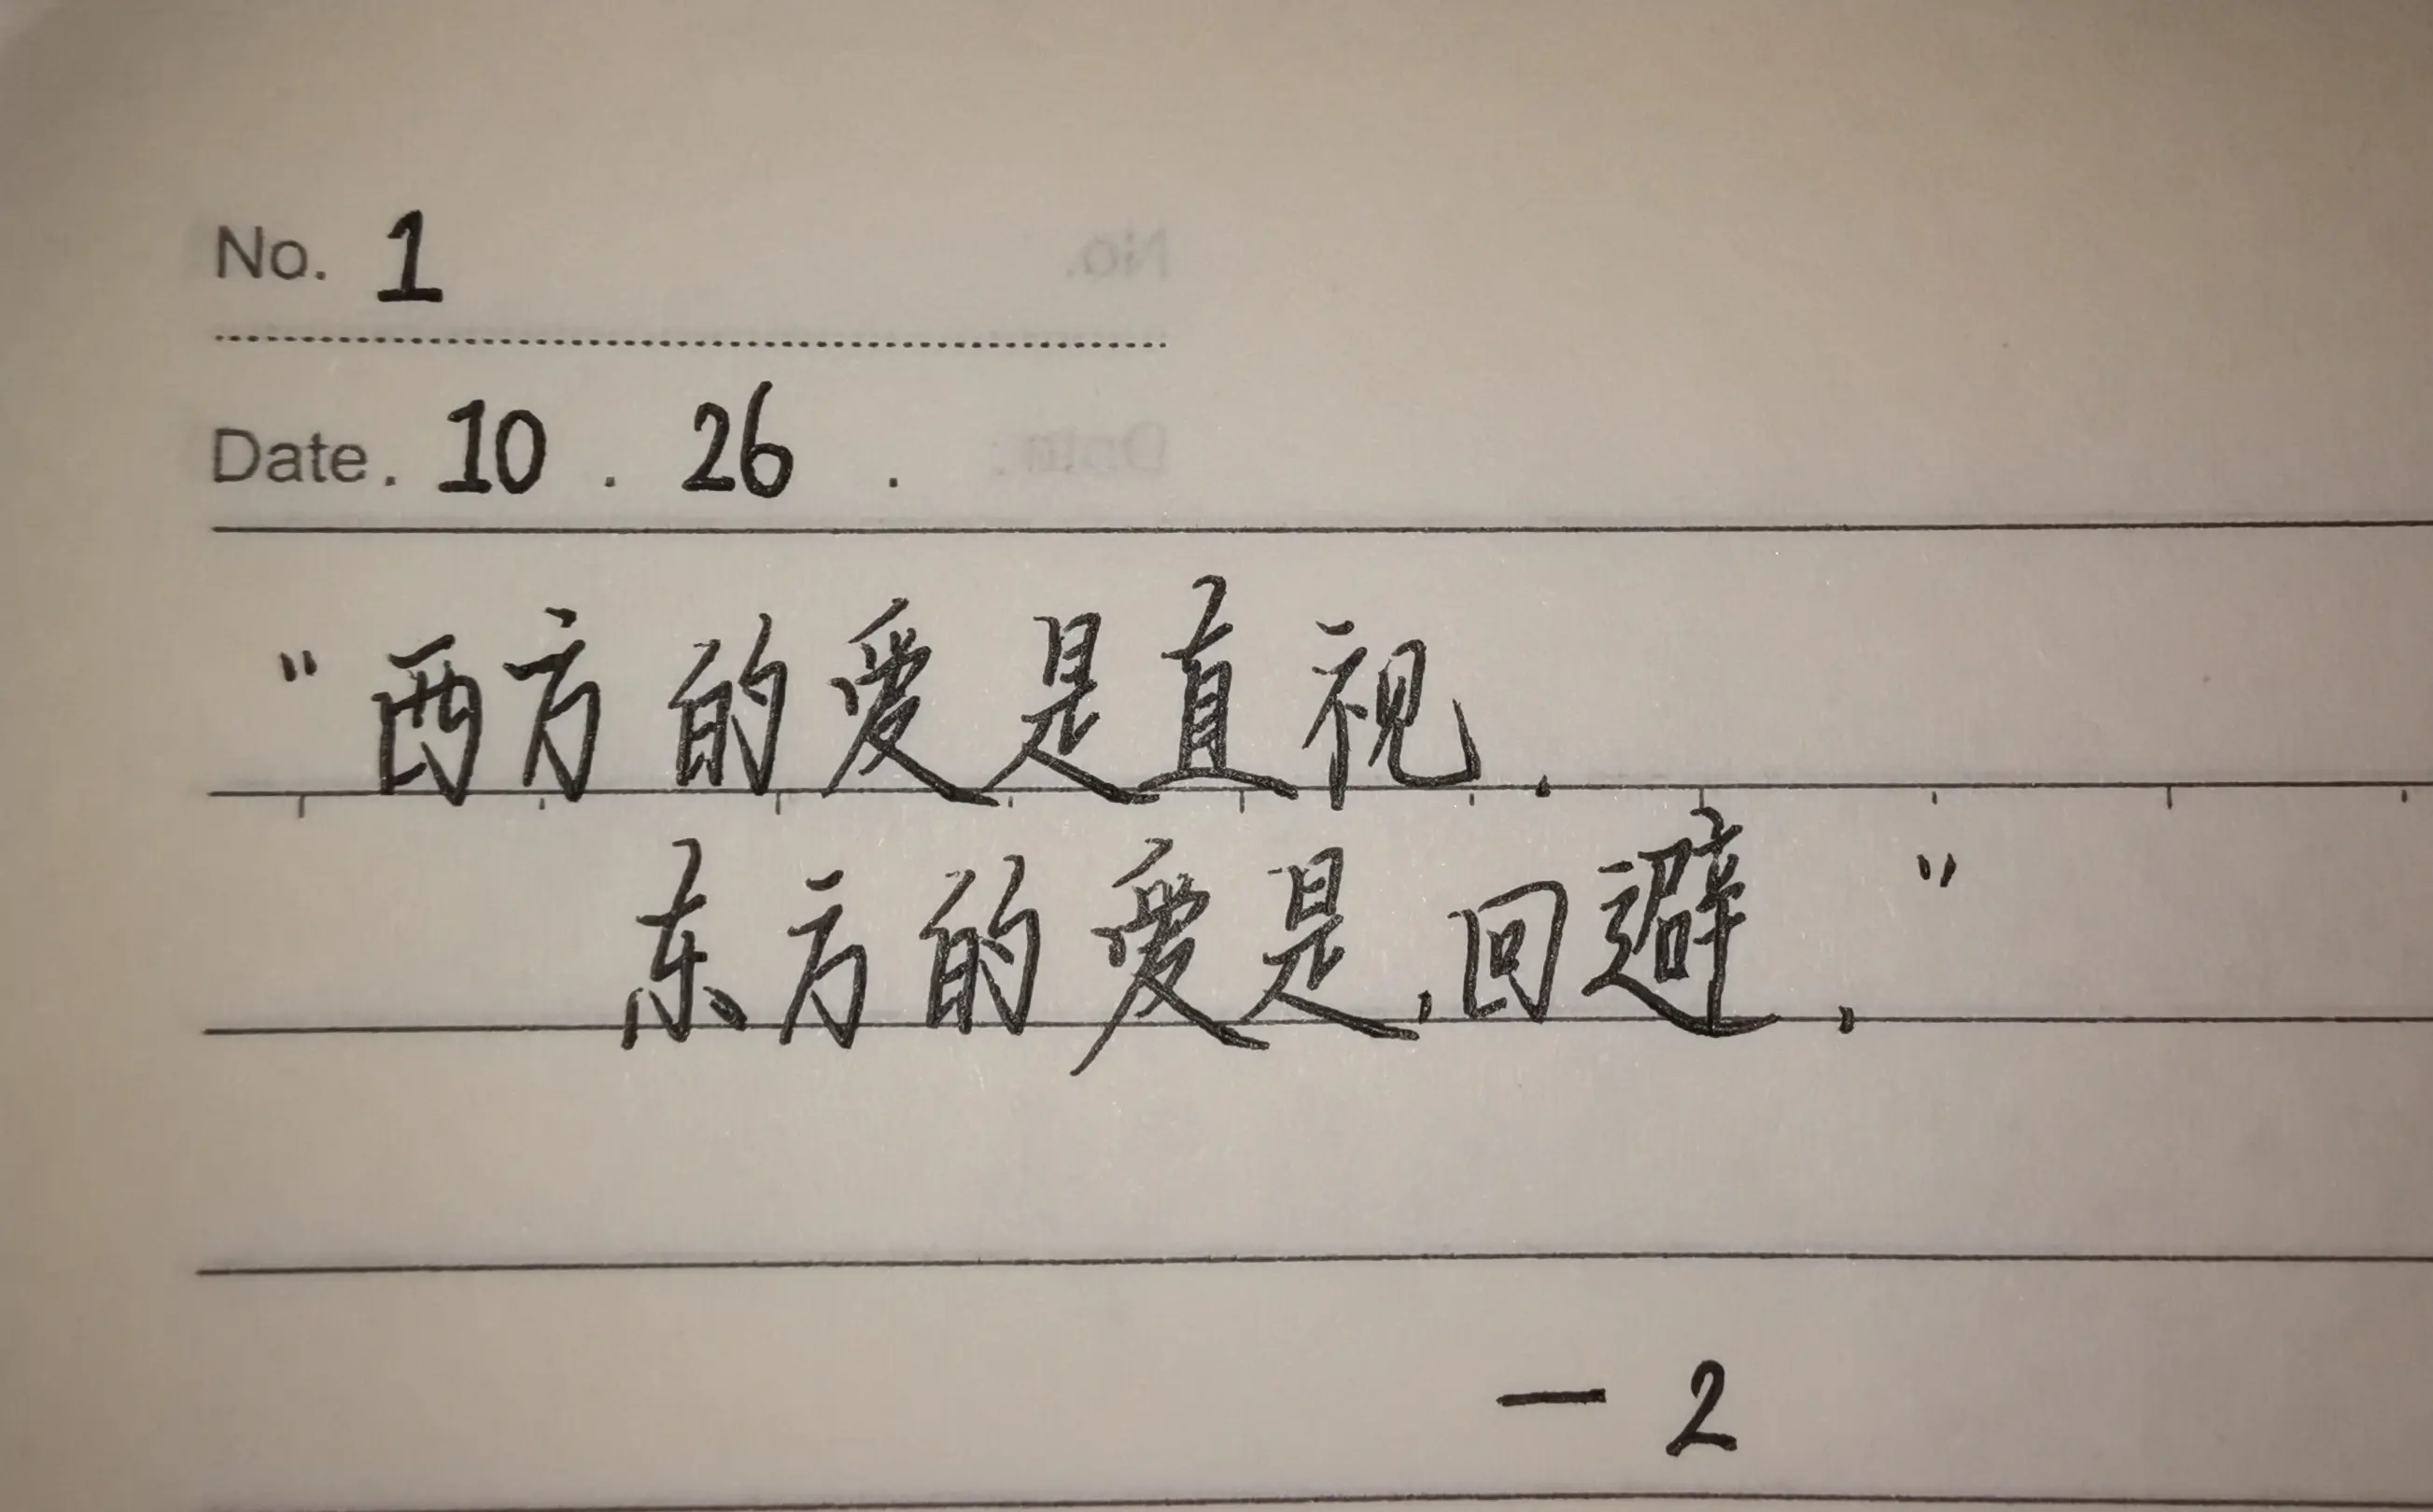 No. 1
Date. 10 . 26 .
“西方的爱是直视.
东方的爱是,回避,”
— 2